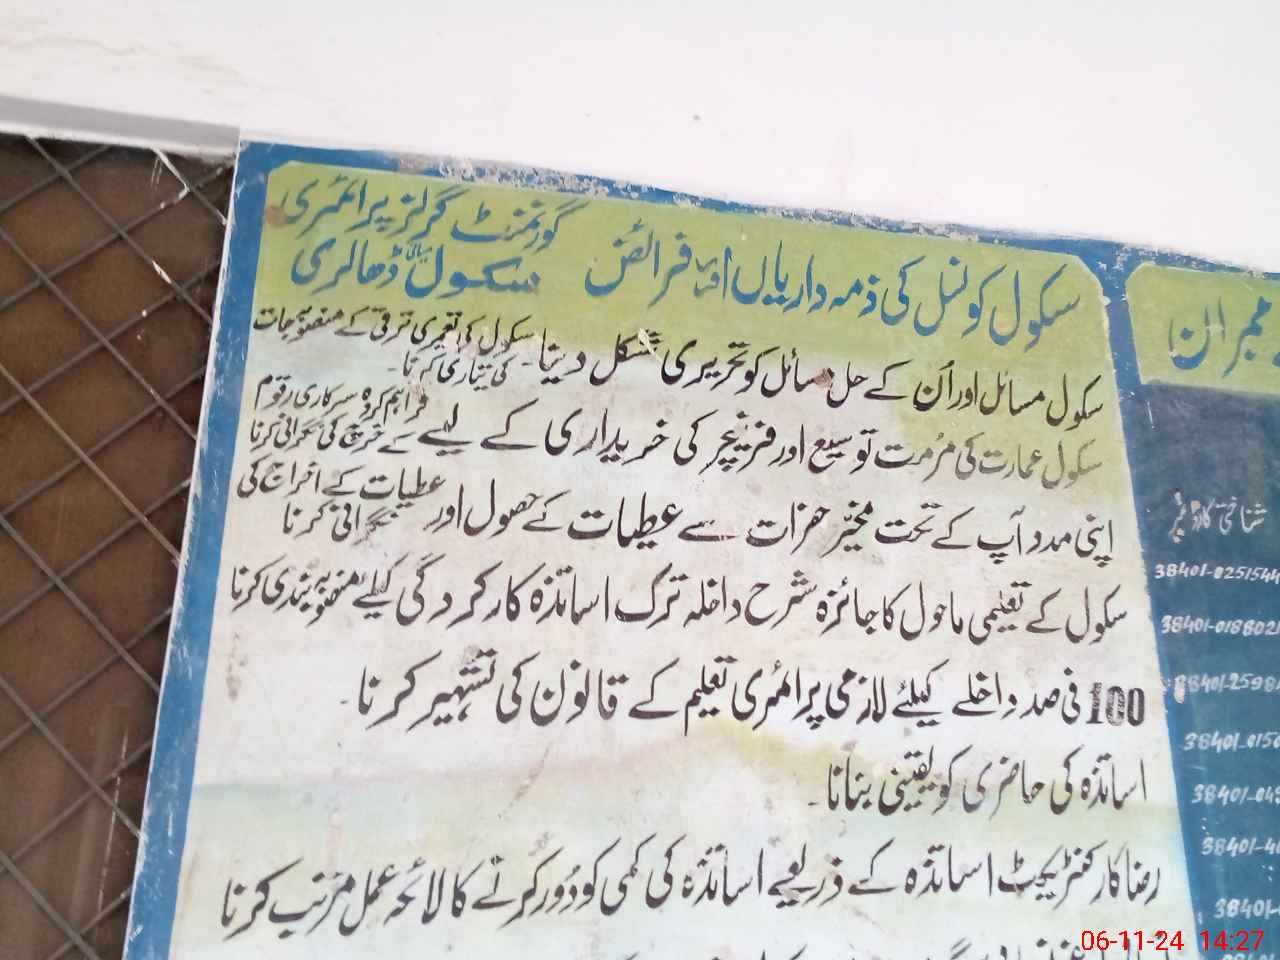 سکول کونسل کی ذمہ داریاں اور فرائض
گورنمنٹ گرلز پرائمری
سکول ڈھالری
سکول مسائل اور اُن کے حل مسائل کو تحریری شکل دینا۔ سکول کی تعمیری ترقی کے منصوبہ جات
کی تیاری کرنا۔
سکول عمارت کی مرُمت توسیع اور فرنیچر کی خریداری کے لیے فراہم کردہ سرکاری رقوم
کے خرچ کی نگرانی کرنا
اپنی مدد آپ کے تحت مخیّر حضرات سے عطیات کے حصول اور عطیات کے اخراج کی
نگرانی کرنا
سکول کے تعلیمی ماحول کا جائزہ شرح داخلہ ترک اساتذہ کارکردگی کیلئے منصوبہ بندی کرنا
100 فی صد داخلے کیلئے لازمی پرائمری تعلیم کے قانون کی تشہیر کرنا۔
اساتذہ کی حاضری کو یقینی بنانا۔
رضاکار کنٹریکٹ اساتذہ کے ذریعے اساتذہ کی کمی کو دُور کرنے کا لائحہ عمل مرتب کرنا
ممبران
شناختی کارڈ نمبر
38401-0251544
38401-018802
38401-2598
38401-0150
38401-04
38401-4
38401-
06-11-24 14:27